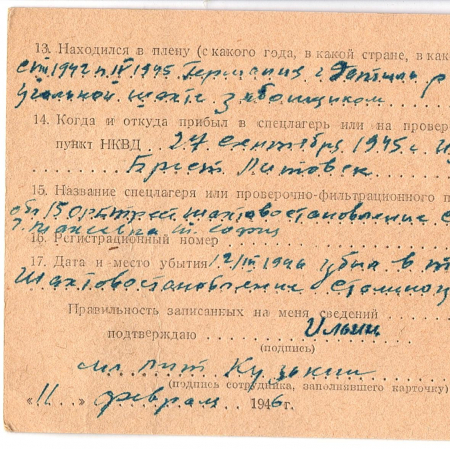 13. Находился в плену (с какого года, в какой стране, в как
1942 п. IV 1945. Германия г.
угальной шахте забойщиком
14. Когда и откуда прибыл в спецлагерь или на провер
пункт НКВД 27 Сентября 1945 г.
Брест. Литовск
15. Название спецлагеря или проверочно-фильтрационного п
шахтовостановление
16. Регистрационный номер
17. Дата и место убытия 1946 убыл в
Шахтовостановление
Правильность записанных на меня сведений
подтверждаю Ильин
(подпись)
мл. лит. Кузькин
(подпись сотрудника, заполнявшего карточку)
« 11 » феврам 1946 г.